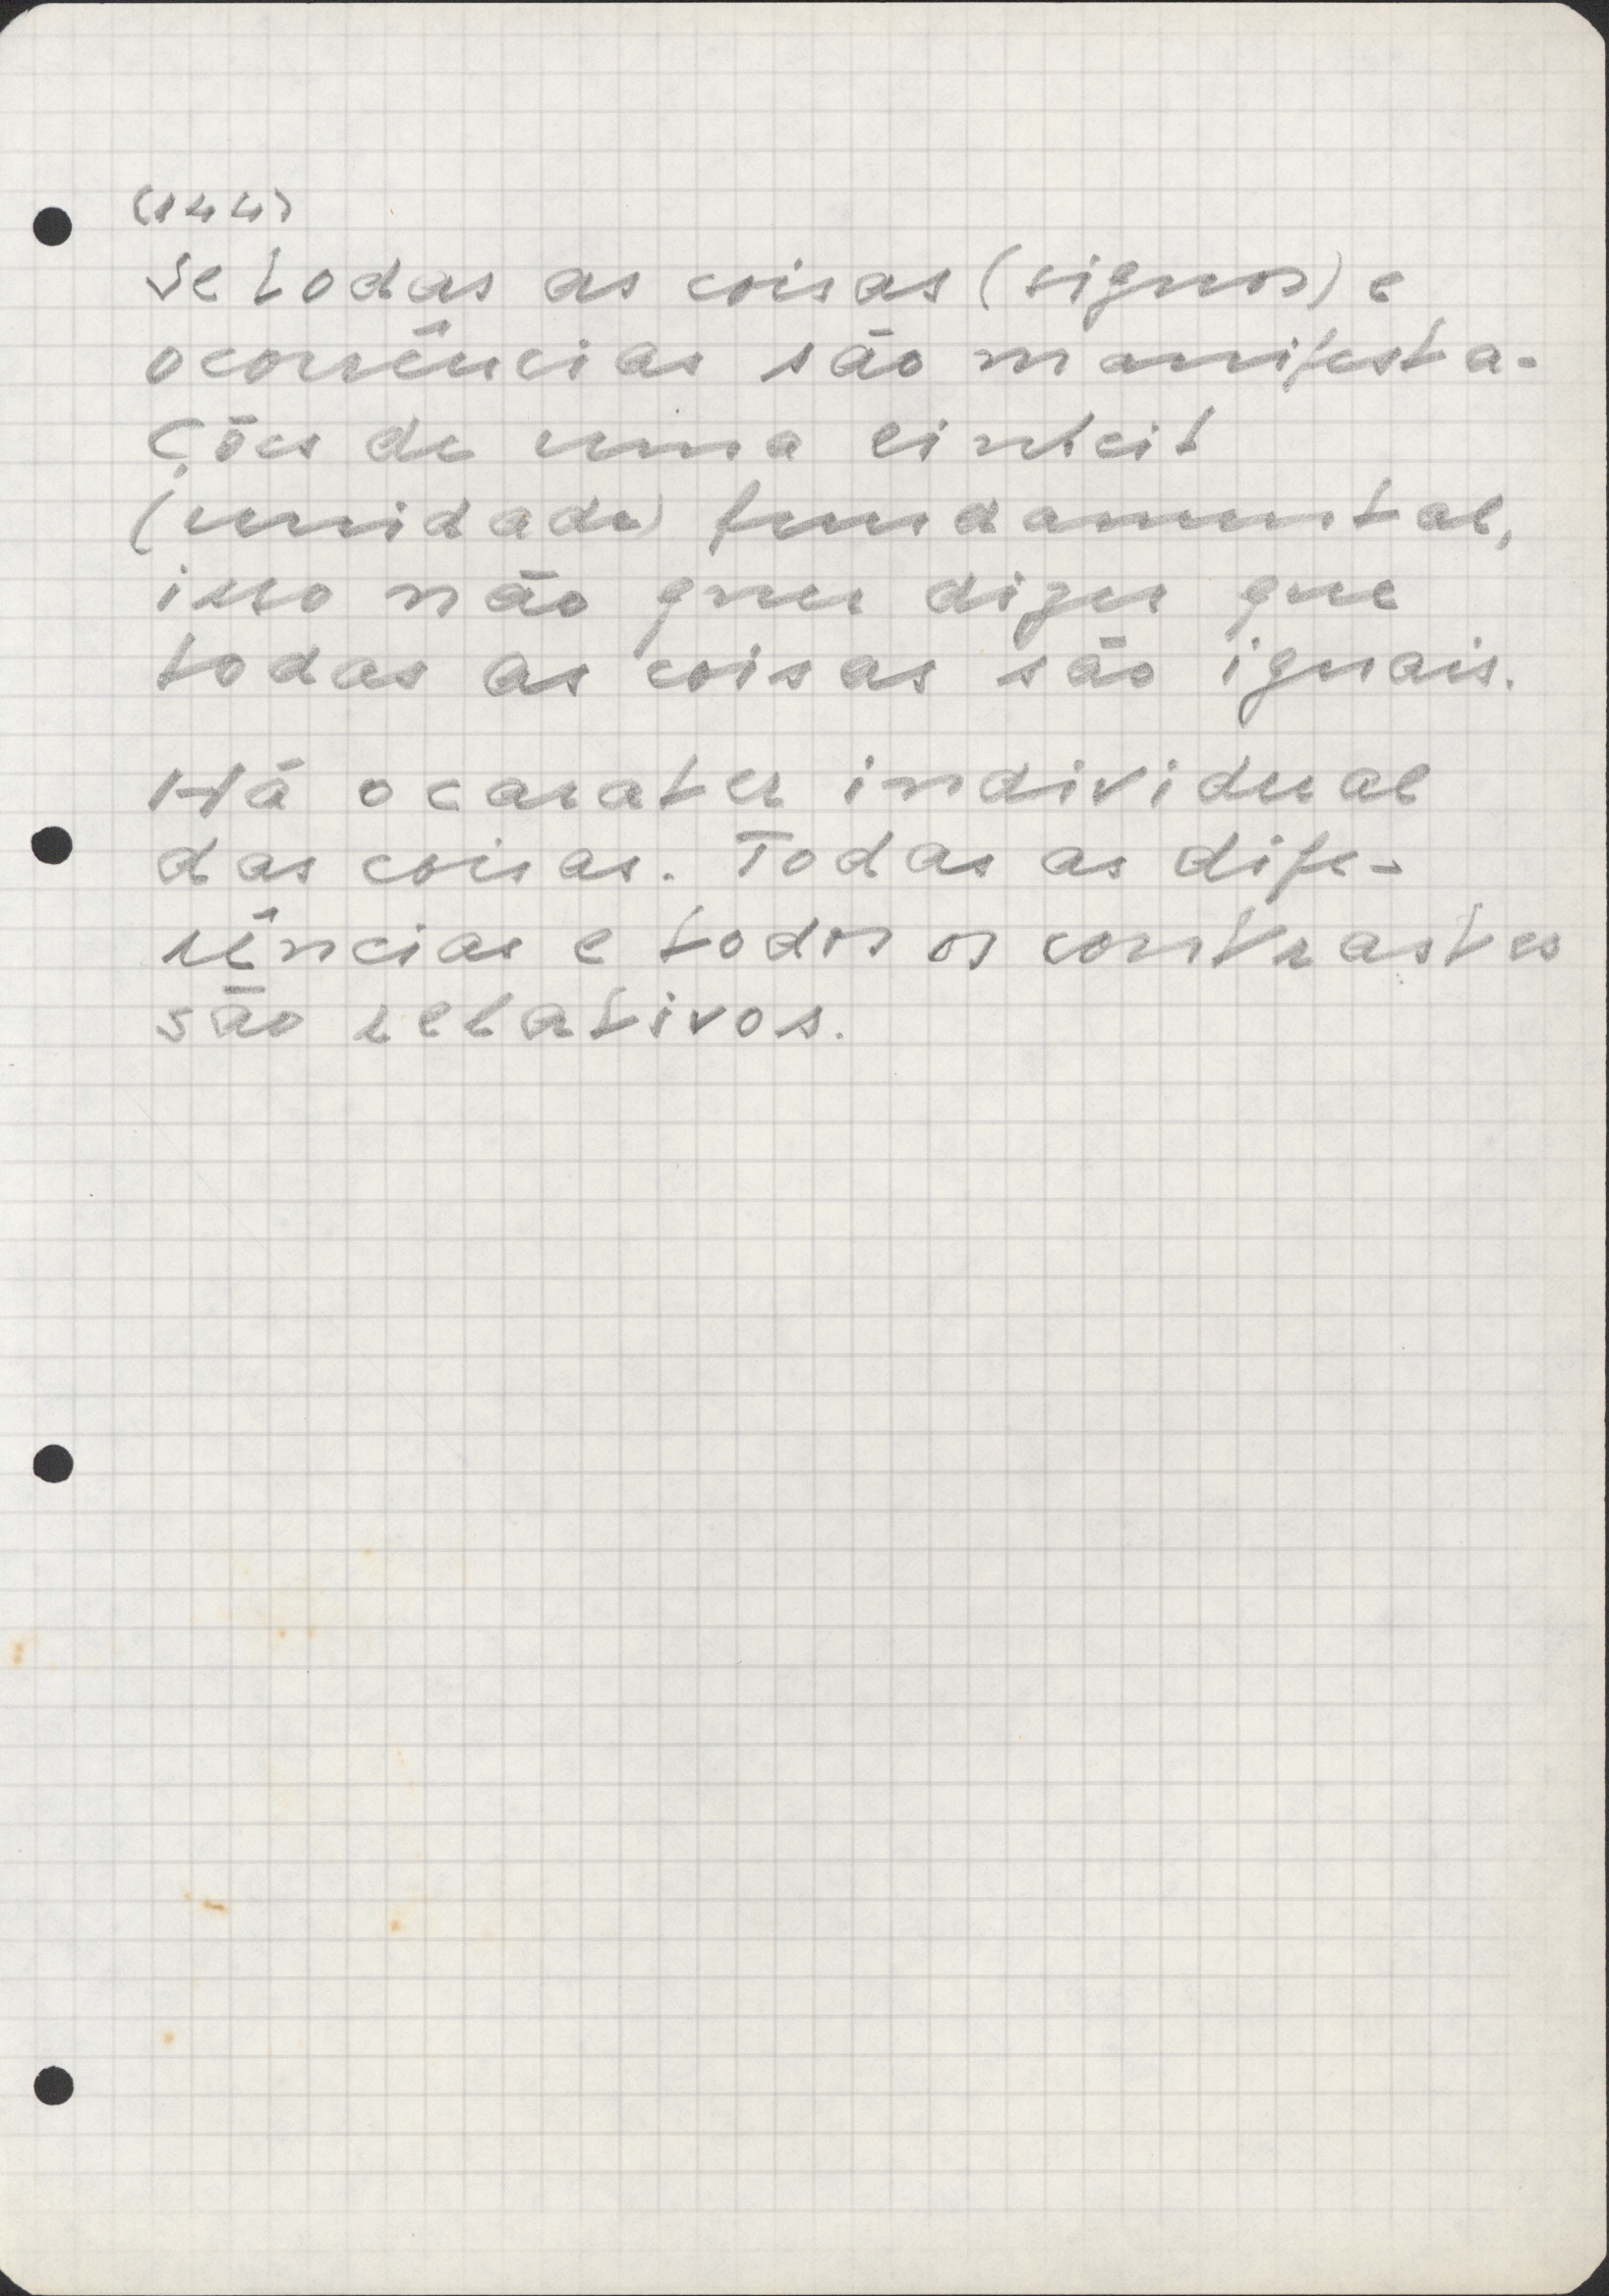 (144)
Se todas as coisas (signos) e
ocorrências são manifesta-
ções de uma einheit
(unidade) fundamental,
isso não quer dizer que
todas as coisas são iguais.
Há o carater individual
das coisas. Todas as dife-
rências e todos os contrastes
são relativos.